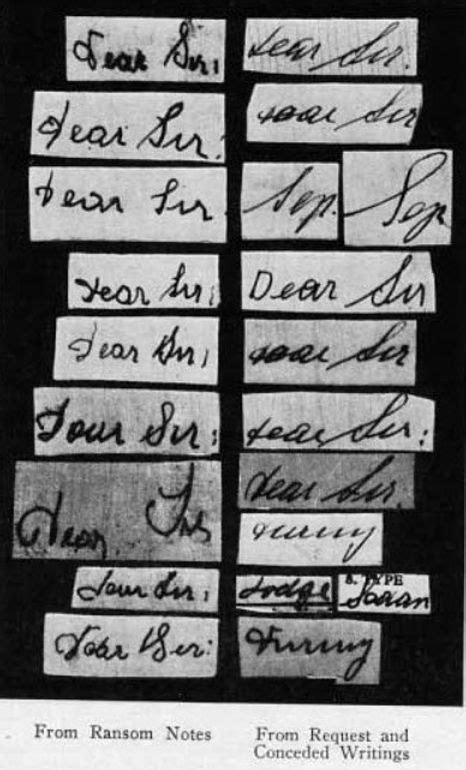 Dear Sir:
Dear Sir:
Dear Sir.
Dear Sir:
Dear Sir:
Dear Sir:
Dear Sir
Dear Sir:
Dear Sir:
From Ransom Notes
Dear Sir.
Dear Sir
Sep. Sep
Dear Sir
Dear Sir
Dear Sir:
Dear Sir.
Dodge 8. TYPE
From Request and
Conceded Writings